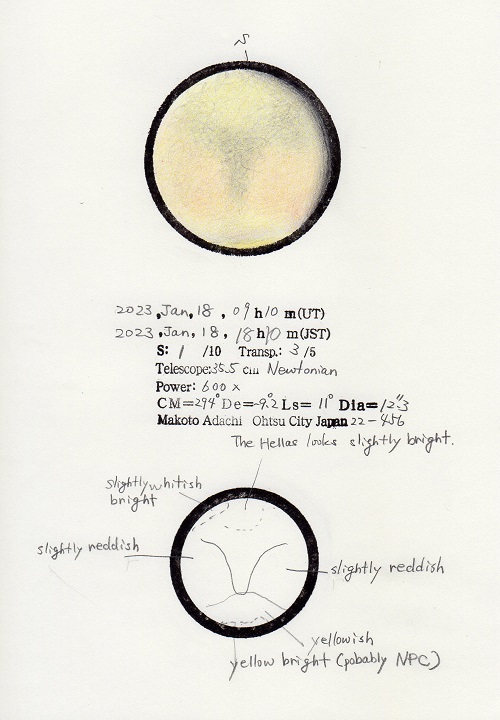 S
2023, Jan, 18, 09h10m(UT)
2023, Jan, 18, 18h10m(JST)
S: 1 /10 Transp.: 3 /5
Telescope: 35.5 cm Newtonian
Power: 600 x
CM=294° De=-9.2° Ls= 11° Dia=12"3
Makoto Adachi Ohtsu City Japan 22-456
The Hellas looks slightly bright.
slightly whitish
bright
slightly reddish
slightly reddish
yellowish
yellow bright (pobably NPC)